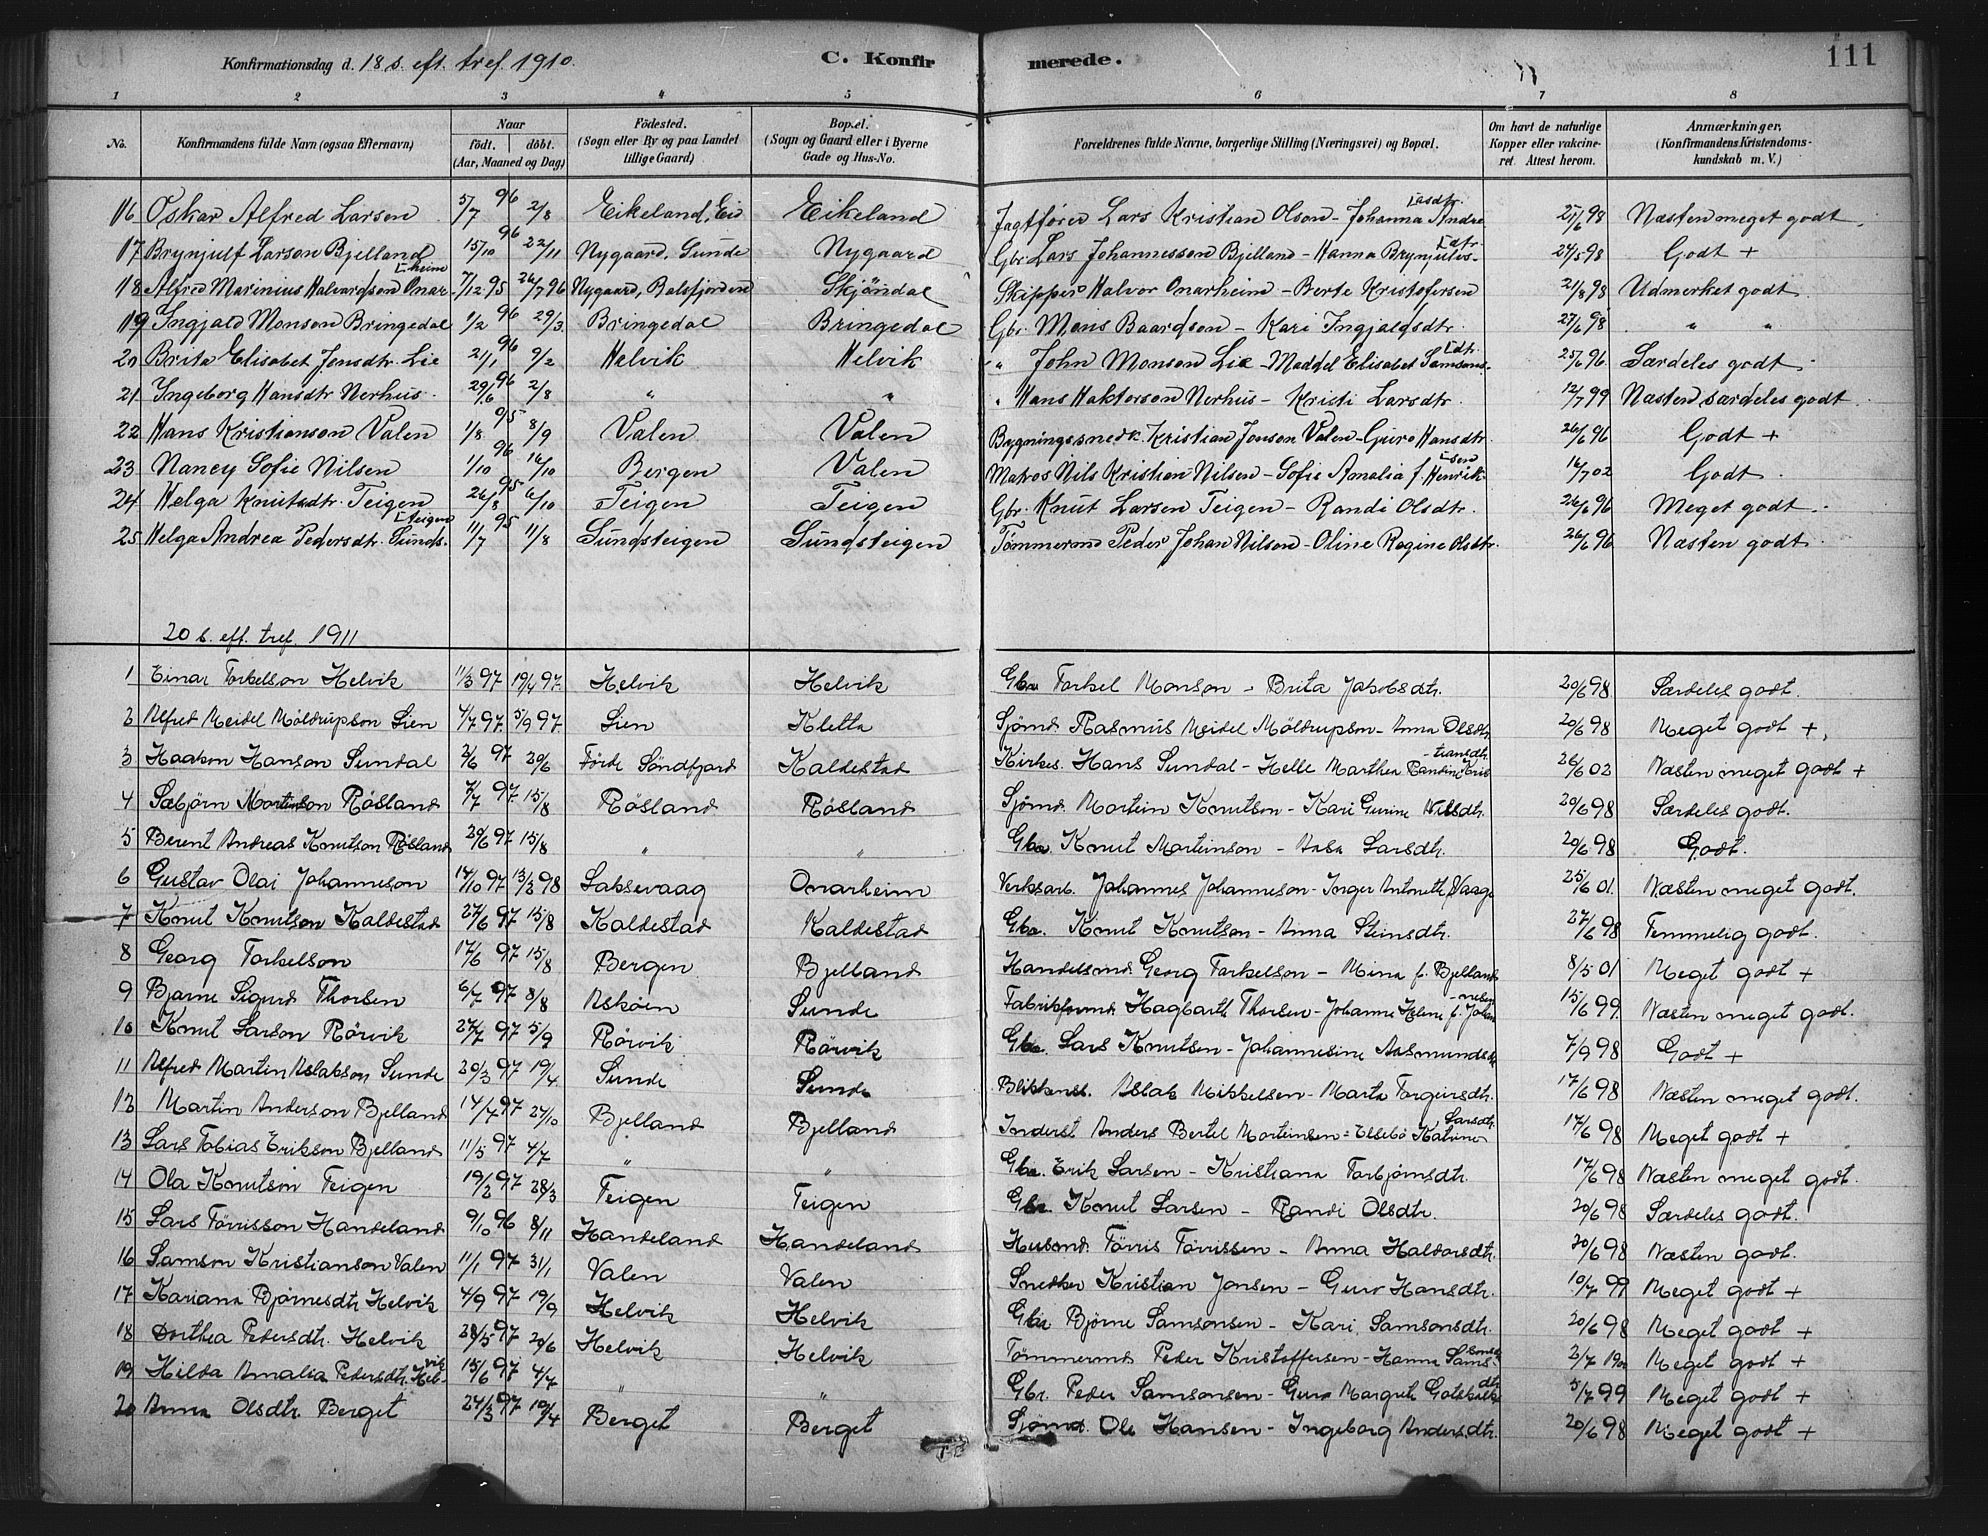 Konfirmationsdag d. 18 s. eft. tref. 1910. C. Konfirmerede. 111
1 2 3 4 5 6 7 8
No. Konfirmandens fulde Navn (ogsaa Efternavn) Naar født. døbt. (Aar, Maaned og Dag) Fødested. (Sogn eller By og paa Landet tillige Gaard) Bopæl. (Sogn og Gaard eller i Byerne Gade og Hus-No. Forældrenes fulde Navne, borgerlige Stilling (Næringsvei) og Bopæl. Om havt de naturlige Kopper eller vakcineret. Attest herom. Anmærkninger. (Konfirmandens Kristendomskundskab m. V.)
16 Oskar Alfred Larsen 5/7 96 2/8 Eikeland, Eid Eikeland Jagtfører Lars Kristian Olson - Johanna Andreasdtr. 25/6 98 Næsten meget godt.
17 Brynjulf Larson Bjelland 15/10 96 22/11 Nygaard, Sunde Nygaard Gbr. Lars Johannesson Bjelland - Hanna Brynjulvsdtr. 24/5 98 Godt +
18 Alfred Marinius Halvardson Onarheim 7/12 95 26/7 96 Nygaard, Balsfjorden Skjøndal Skipper Halvor Onarheim - Berte Kristofersen 21/8 98 Udmerket godt
19 Ingjald Monson Bringedal 1/2 96 29/3 Bringedal Bringedal Gbr. Mons Baardson - Kari Ingjaldsdtr. 27/6 98 " "
20 Brita Elisabet Jonsdtr. Lie 21/1 96 9/2 Helvik Helvik " John Monson Lie - Maddel Elisabet Samsonsdtr. 25/6 96 Særdeles godt
21 Ingeborg Hansdtr Nerhus 29/6 96 2/8 " " " Hans Haktorson Nerhus - Kristi Larsdtr. 12/7 99 Næsten særdeles godt.
22 Hans Kristianson Valen 1/8 95 8/9 Valen Valen Bygningssnedk. Kristian Jonson Valen - Guro Hansdtr. 26/6 96 Godt +
23 Nancy Sofie Nilsen 1/10 96 16/10 Bergen Valen Matros Nils Kristian Nilsen - Sofie Amalia f. Henriksen 16/7 02 Godt
24 Helga Knutsdtr. Teigen 26/8 95 6/10 Teigen Teigen Gbr. Knut Larsen Teigen - Randi Olsdtr. 26/6 96 Meget godt
25 Helga Andrea Pedersdtr. Sundsteigen 11/7 95 11/8 Sundsteigen Sundsteigen Tømmermd Peder Johan Nilson - Oline Regine Olsdtr. 26/6 96 Næsten godt
20 s. eft. tref. 1911
1 Einar Torkelson Helvik 11/3 97 19/4 97. Helvik Helvik Gbr. Torkel Monson - Brita Jakobsdtr. 20/6 98. Særdeles godt.
2 Alfred Meidel Møldrupson Lien 4/7 97. 5/9 97. Lien Kletta Sjømd. Rasmus Meidel Møldrupson - Anna Olsdtr. 20/6 98 Meget godt +
3 Haakon Hanson Sundal 2/6 97 20/6 Førde Søndfjord Kaldestad Kirkes. Hans Sundal - Helle Marthea Randine Kristiansdtr. 26/6 02 Næsten meget godt +
4 Sæbjørn Morteinson Røsland 7/7 97. 15/8 Røsland Røsland Sjømd. Mortein Knutson - Kari Gurine Nilsdtr. 20/6 98 Særdeles godt.
5 Berent Andreas Knutson Røsland 20/6 97 15/8 " " Gbr. Knut Morteinson - Aasa Larsdtr. 20/6 98 Godt.
6 Gustav Olai Johanneson 14/10 97 13/3 98 Laksevaag Onarheim Verksarb. Johannes Johanneson - Inger Antonette Vaage 25/6 01. Næsten meget godt.
7 Knut Knutson Kaldestad 27/6 97 15/8 Kaldestad Kaldestad Gbr. Knut Knutson - Anna Steinsdtr. 27/6 98 Temmelig godt.
8 Georg Torkelson 17/6 97 15/8 Bergen Bjelland Handelsmd. Georg Torkelson - Mina f. Bjelland 8/5 01 Meget godt +
9 Bjarne Sigurd Thorsen 6/7 97 8/8 Askøen Sunde Fabrikformd. Hagbarth Thorsen - Johanne Helene f. Johannesen 15/6 99. Næsten meget godt.
10 Knut Larson Rørvik 27/7 97 5/9 Rørvik Rørvik Gbr. Lars Knutsen - Johannesine Aasmundsdtr 7/9 98 Godt +
11 Alfred Martin Aslakson Sunde 20/3 97 19/4. Sunde Sunde Blikkensl. Aslak Mikkelsen - Marta Torgeirsdtr. 17/6 98 Næsten meget godt.
12 Martin Anderson Bjelland 14/7 97 24/10 Bjelland Bjelland Inderst Anders Bertel Morteinsen - Ellebø Katrine Larsdtr. 17/6 98 Meget godt +
13 Lars Tobias Erikson Bjelland 11/5 97 4/7 " " Gbr. Erik Larsen - Kristiana Torbjørnsdtr. 17/6 98 Næsten meget godt.
14 Ola Knutson Teigen 19/2 97 28/3 Teigen Teigen Gbr. Knut Larsen - Randi Olsdtr. 20/6 98 Særdeles godt.
15 Lars Tørrisson Handeland 9/10 96 8/11 Handeland Handeland Husmd. Tørris Tørrissen - Anna Haldorsdtr. 20/6 98 Næsten godt.
16 Samson Kristianson Valen 11/1 97 31/1 Valen Valen Snedker Kristian Jonsen - Guro Hansdtr. 10/7 99 Meget godt +
17 Kariana Bjørnesdtr Helvik 4/9 97 19/9 Helvik Helvik Gbr Bjørne Samsonsen - Kari Samsonsdtr. 20/6 98 Meget godt +
18 Dorthea Pedersdtr. Helvik 28/5 97 20/6 Helvik Helvik Tømmermd Peder Kristoffersen - Hanna Samsonsd 2/7 1900 Meget godt +
19 Hilda Amalia Pedersdtr. Helvik 15/6 97 4/7 " " Gbr. Peder Samsonsen - Guro Margreta Gotskalksdtr 5/7 99 Meget godt +
20 Anna Olsdtr. Berget 24/3 97 19/4 Berget Berget Sjømd. Ole Hansen - Ingeborg Andersdtr. 20/6 98 Meget godt +